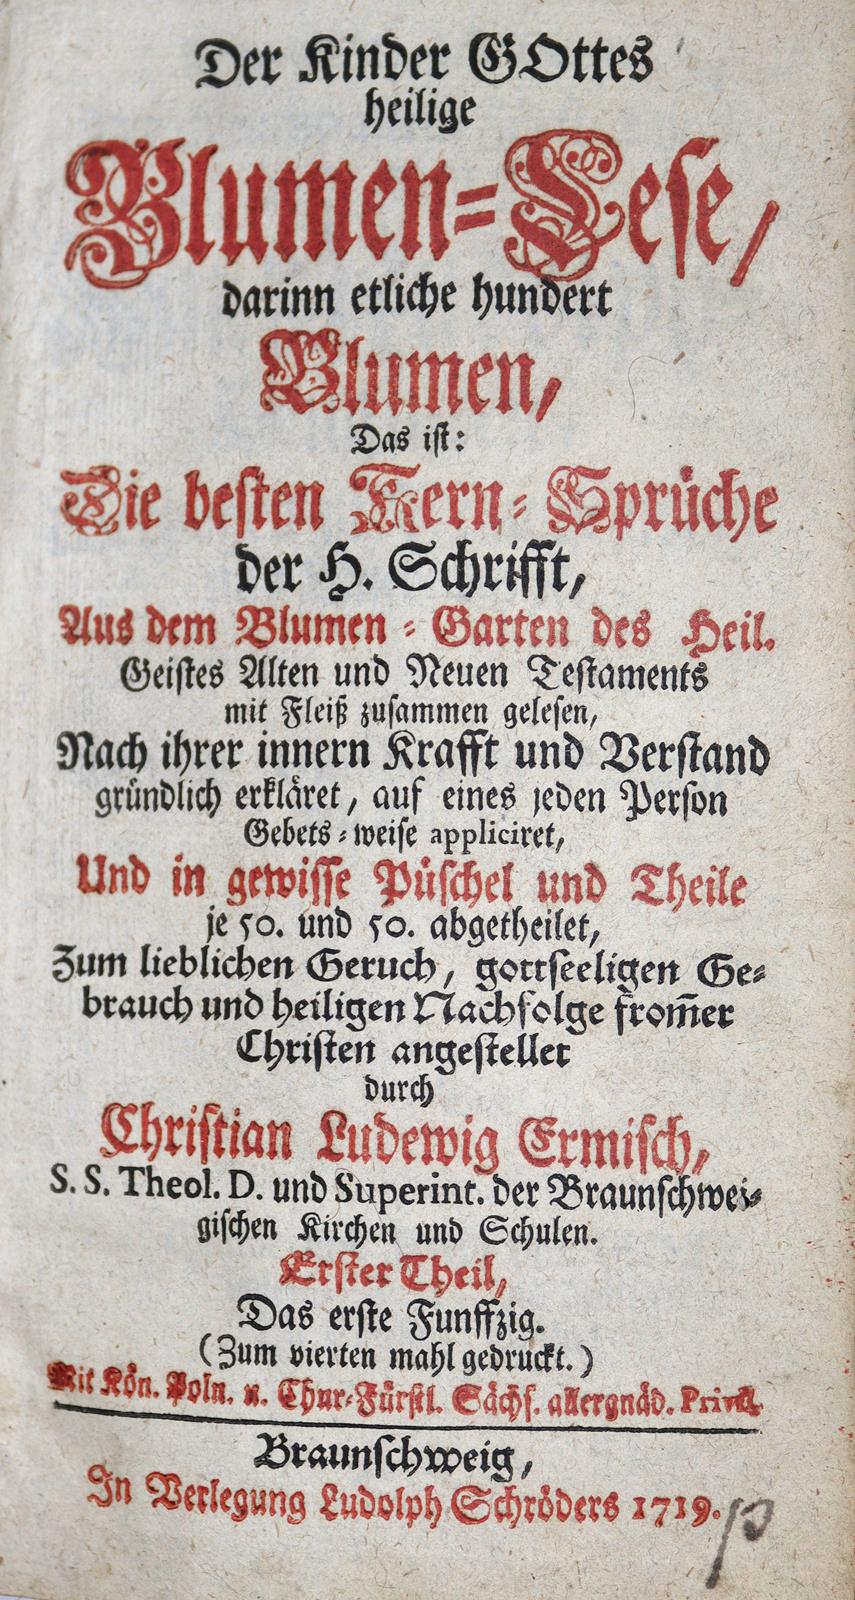 Der Kinder GOttes
heilige
Blumen=Lese,
darinn etliche hundert
Blumen,
Das ist:
Die besten Kern=Sprüche
der H. Schrifft,
Aus dem Blumen=Garten des Heil.
Geistes Alten und Neuen Testaments
mit Fleiß zusammen gelesen,
Nach ihrer innern Krafft und Verstand
gründlich erkläret, auf eines jeden Person
Gebets=weise appliciret,
Und in gewisse Püschel und Theile
je 50. und 50. abgetheilet,
Zum lieblichen Geruch, gottseeligen Ge=
brauch und heiligen Nachfolge from̅er
Christen angestellet
durch
Christian Ludewig Ermisch,
S. S. Theol. D. und Superint. der Braunschwei=
gischen Kirchen und Schulen.
Erster Theil,
Das erste Funffzig.
(Zum vierten mahl gedruckt.)
Mit Kön. Poln. u. Chur=Fürstl. Sächs. allergnäd. Privil.
Braunschweig,
In Verlegung Ludolph Schröders 1719.
p